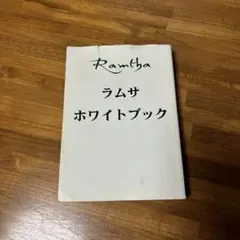 Ramtha
ラムサ
ホワイトブック